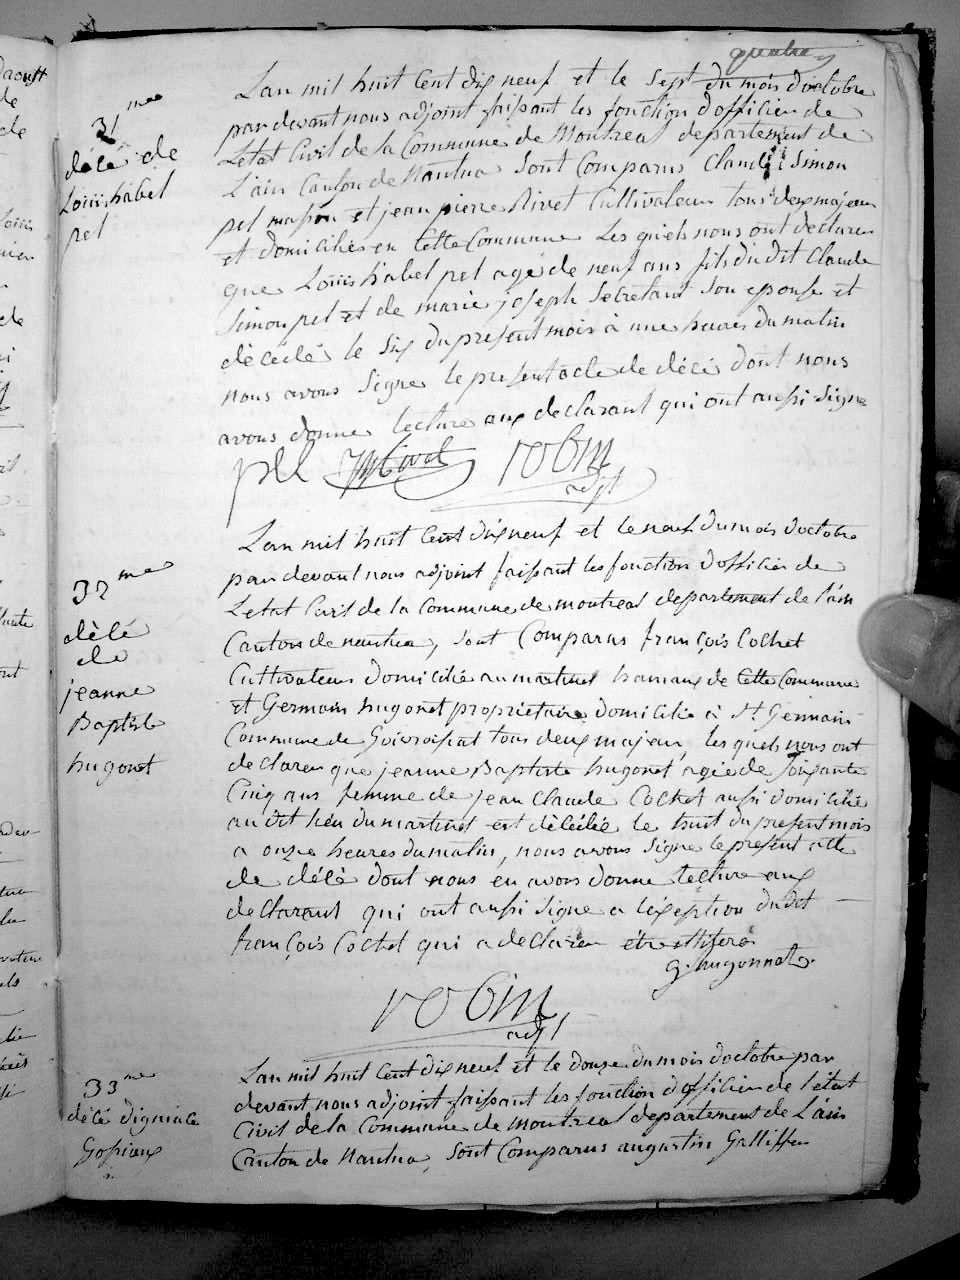 quatre
31 me
décé de
Louis habel
pel
L'an mil huit Cent dix neuf et le Sept du mois d'octobre
par devant nous adjoint faissant les fonction d'officier de
Letat Civil de la Commune de Montreal departement de
L'ain Canton de Nantua Sont Comparus Claude Simon
pel mason et jean pierre Rivet Cultivateur tous deux majeur
et domiciliés en Cette Commune Les quels nous ont declarer
que Louis habel pel agé de neuf ans fils du dit Claude
Simon pel et de marie joseph Secretant Son eponse et
décedé le Six du present mois à une heures du matin
nous avons Signe le present acte de décé dont nous
avons donne lecture aux declarant qui ont aussi Signe
pel Rivet robin
adjt
32 me
décé
de
jeanne
Baptiste
hugonet
L'an mil huit Cent dix neuf et le neuf du mois d'octobre
par devant nous adjoint faissant les fonction d'officier de
Letat Civil de la Commune de montreal departement de l'ain
Canton de nantua, Sont Comparus françois Cochet
Cultivateur domicilié au martinet hameaux de Cette Commune
et Germain hugonet propriétaire domicilié à St Germain
Commune de tous deux majeur, les quels nous ont
declarer que jeanne Baptiste hugonet agée de Soixante
Cinq ans femme de jean Claude Cochet aussi domicilié
au dit lieu du martinet est décédée le huit du present mois
a onze heures du matin, nous avons Signe le present acte
de décé dont nous en avons donne lecture aux
declarant qui ont aussi Signe a l'exseption du dit
françois Cochet qui a declarer être illiteré
g. hugonnet
robin
adjt
33 me
décé
L'an mil huit Cent dix neuf et le douze du mois d'octobre par
devant nous adjoint faissant les fonction d'officier de l'état
Civil de la Commune de montreal departement de L'ain
Canton de Nantua, Sont Comparus augustin Galliffer